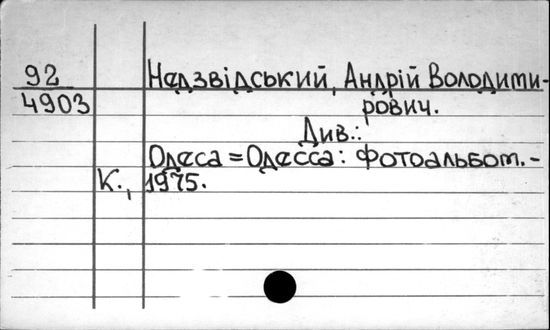 92
4903
Недзвідський, Андрій Володими-
рович.
Див.:
Одеса = Одесса: Фотоальбом.-
К., 1975.